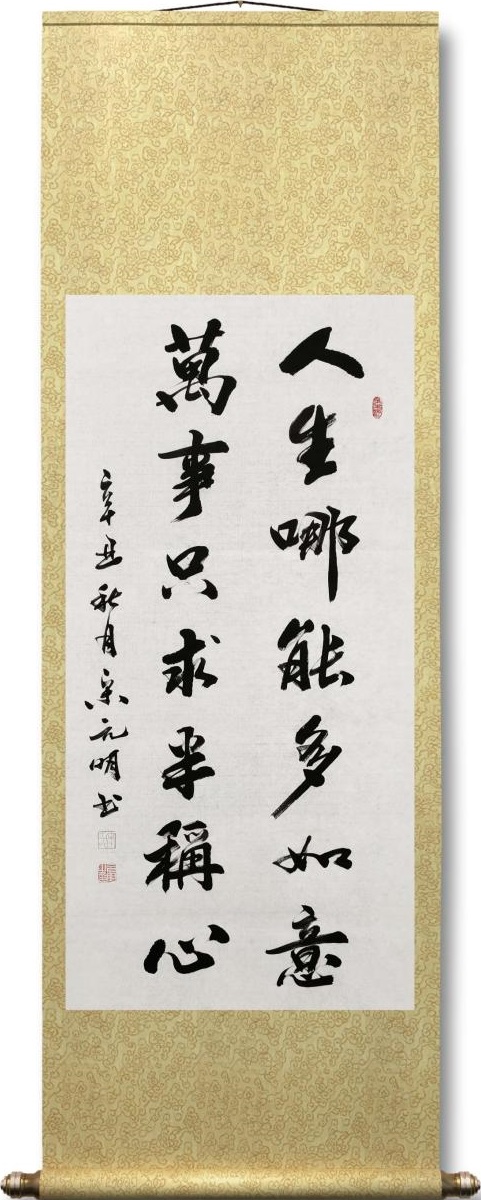 人生哪能多如意
萬事只求半稱心
辛丑秋月宋元明书